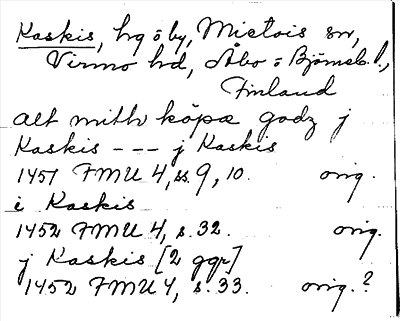 Kaskis, hg o by, Mietois sn,
Virmo hd, Åbo o Björneb. l.,
Finland
alt mith köpæ godz j
Kaskis --- j Kaskis
1451 FMU 4, ss. 9, 10. orig.
i Kaskis
1452 FMU 4, s. 32. orig.
j Kaskis [2 ggr]
1452 FMU 4, s. 33. orig.?